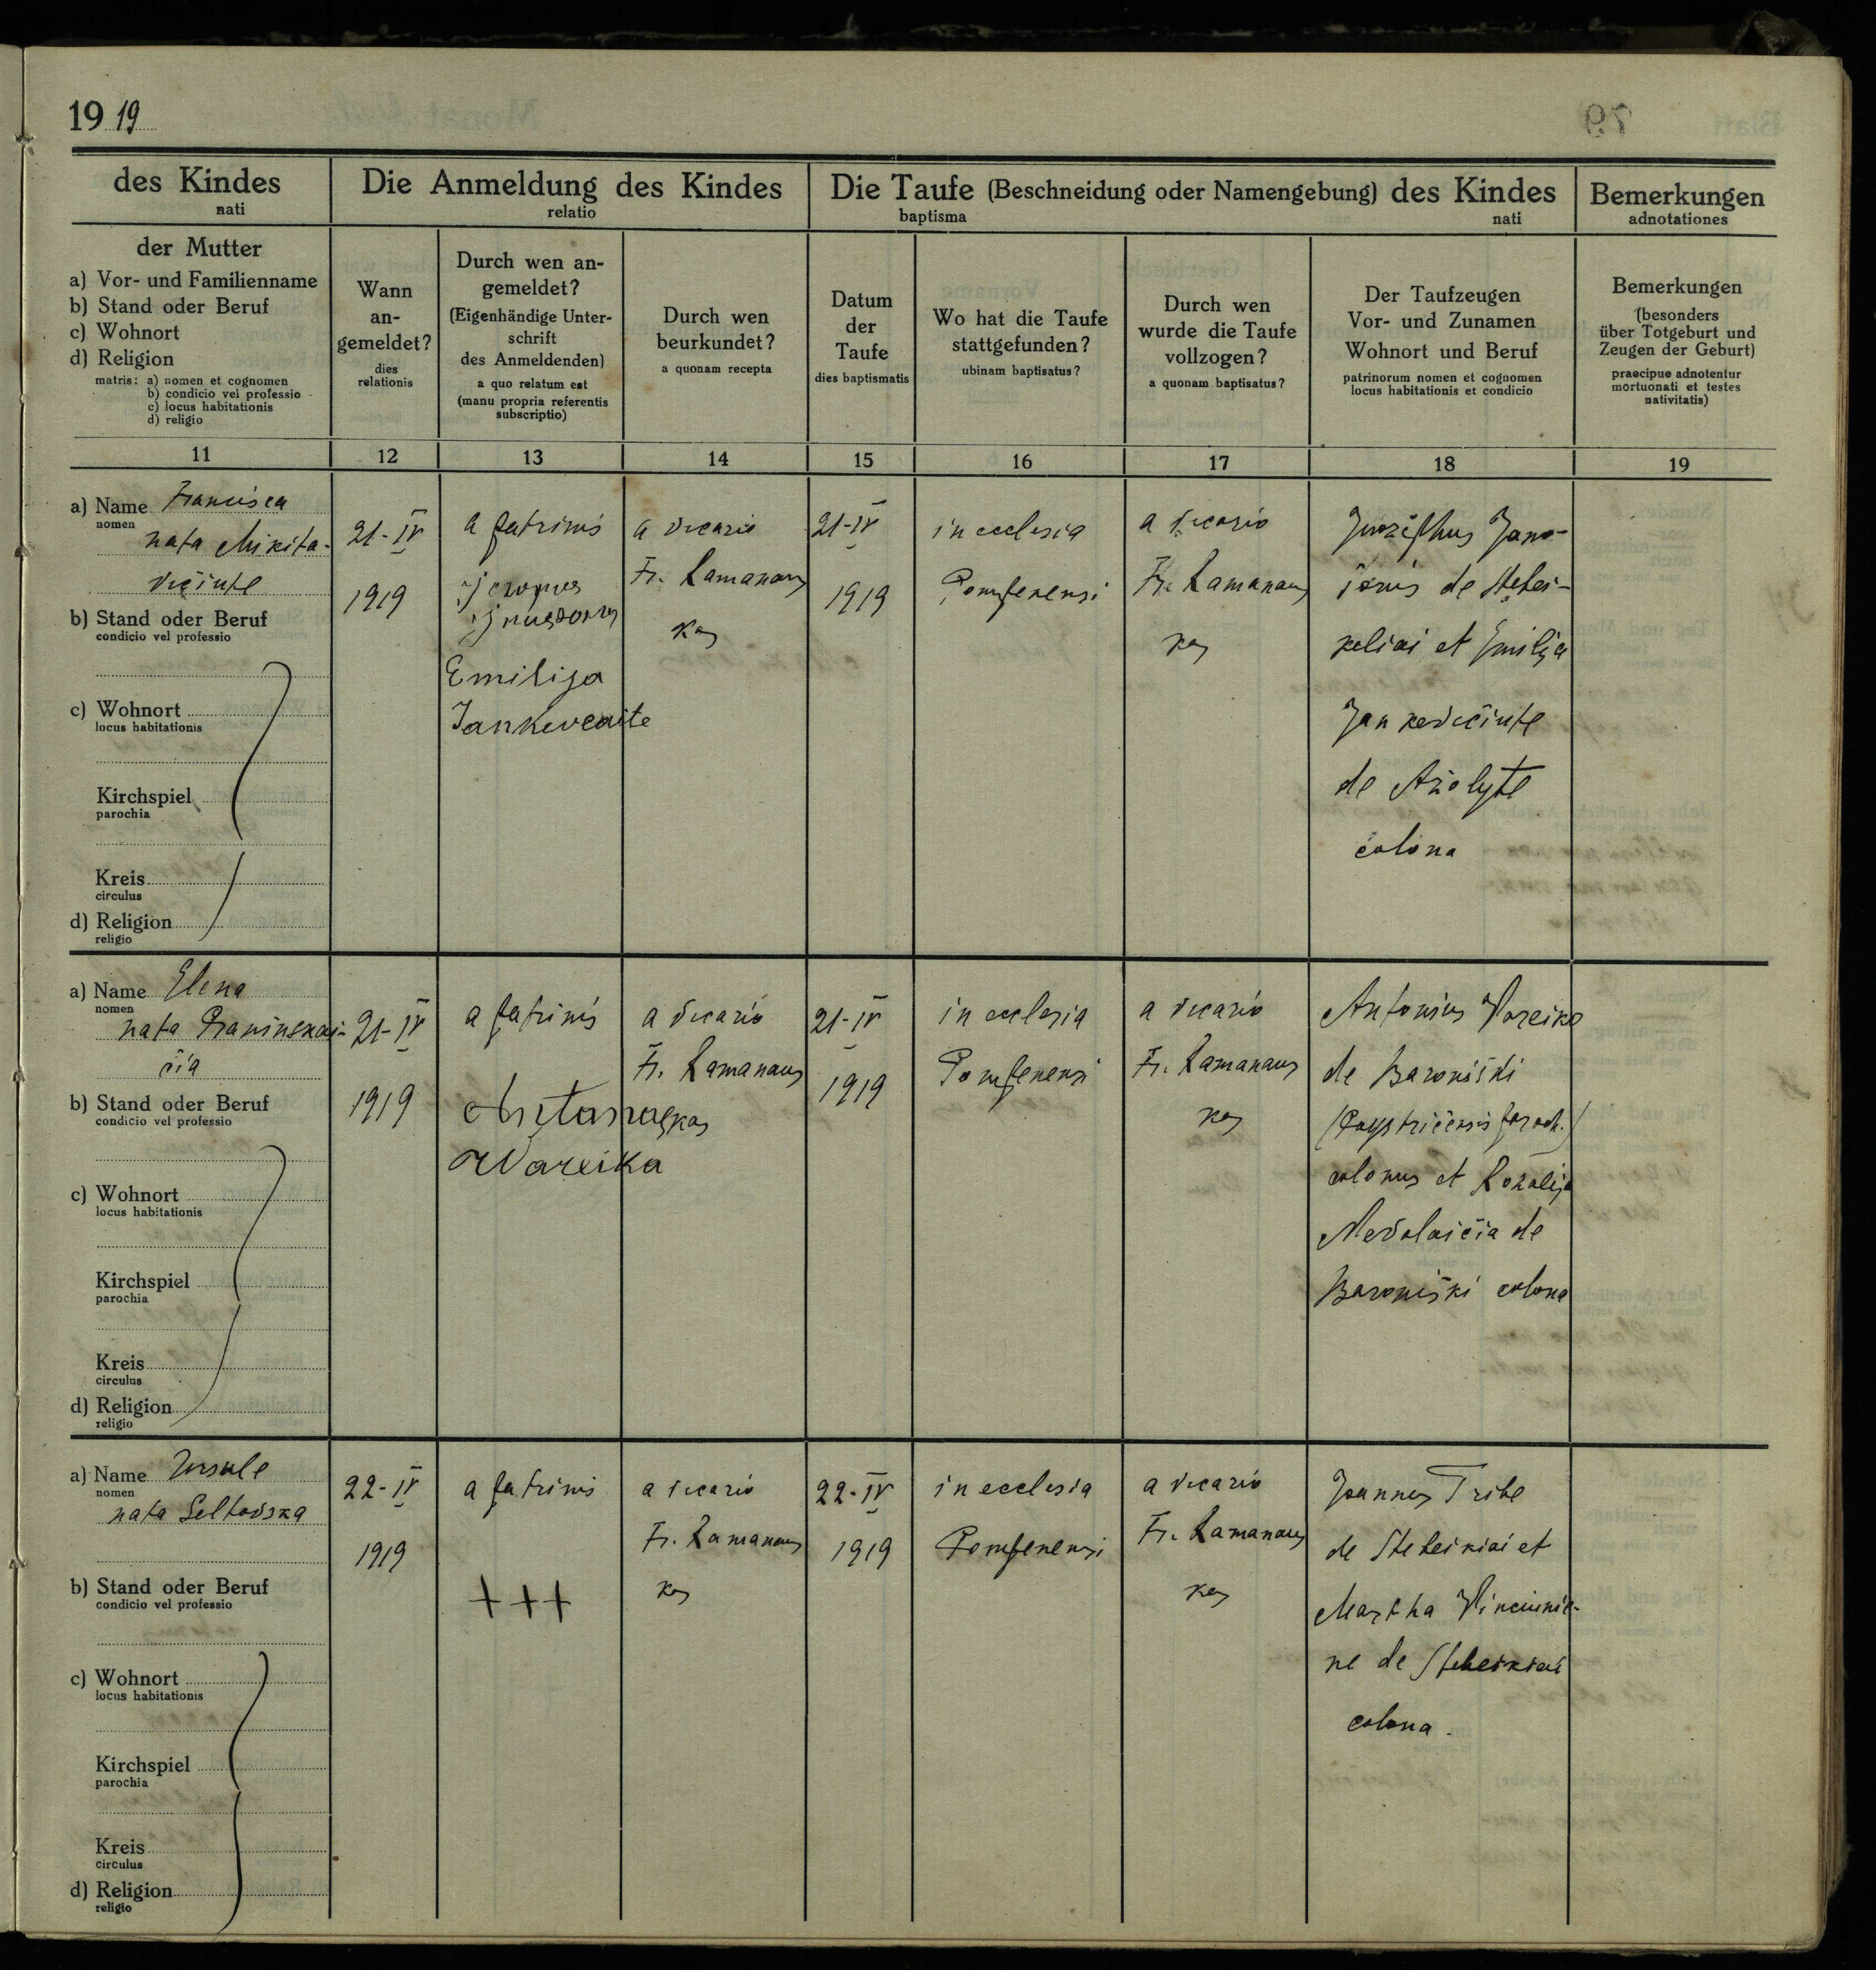 19 19
des Kindes
nati
Die Anmeldung des Kindes
relatio
Die Taufe (Beschneidung oder Namengebung) des Kindes
baptisma nati
Bemerkungen
adnotationes
der Mutter
a) Vor- und Familienname
b) Stand oder Beruf
c) Wohnort
d) Religion
matris: a) nomen et cognomen
b) condicio vel professio
c) locus habitationis
d) religio
Wann
an-
gemeldet?
dies
relationis
Durch wen an-
gemeldet?
(Eigenhändige Unter-
schrift
des Anmeldenden)
a quo relatum est
(manu propria referentis
subscriptio)
Durch wen
beurkundet?
a quonam recepta
Datum
der
Taufe
dies baptismatis
Wo hat die Taufe
stattgefunden?
ubinam baptisatus?
Durch wen
wurde die Taufe
vollzogen?
a quonam baptisatus?
Der Taufzeugen
Vor- und Zunamen
Wohnort und Beruf
patrinorum nomen et cognomen
locus habitationis et condicio
Bemerkungen
(besonders
über Totgeburt und
Zeugen der Geburt)
praecipue adnotentur
mortuonati et testes
nativitatis)
11 12 13 14 15 16 17 18 19
a) Name Francisca
nomen
nata Mikita-
vičiute
b) Stand oder Beruf
condicio vel professio
c) Wohnort
locus habitationis
Kirchspiel
parochia
Kreis
circulus
d) Religion
religio
21-IV
1919
a patrinis
Emilija
Jankevcaite
a vicario
Fr. Ramanaus
kas
21-IV
1919
in ecclesia
Pompenensi
a vicario
Fr. Ramanaus
kas
Juozephus Jano-
de Stebei-
keliai et Emilija
Jankevičiute
de Ažolyte
colona
a) Name Elena
nomen
nata
čia
b) Stand oder Beruf
condicio vel professio
c) Wohnort
locus habitationis
Kirchspiel
parochia
Kreis
circulus
d) Religion
religio
21-IV
1919
a patrinis
Antanas
Wareika
a vicario
Fr. Ramanaus
kas
21-IV
1919
in ecclesia
Pompenensi
a vicario
Fr. Ramanaus
kas
Antonius Vareika
de Baroniški
paroch.)
colonus et Rozalija
de
Baroniški colona
a) Name Ursule
nomen
nata
b) Stand oder Beruf
condicio vel professio
c) Wohnort
locus habitationis
Kirchspiel
parochia
Kreis
circulus
d) Religion
religio
22-IV
1919
a patrinis
+++
a vicario
Fr. Ramanaus
kas
22-IV
1919
in ecclesia
Pompenensi
a vicario
Fr. Ramanaus
kas
Joannes Tribe
de Stebeikiai et
Martha Vinciunie-
ne de Stebeikiai
colona.